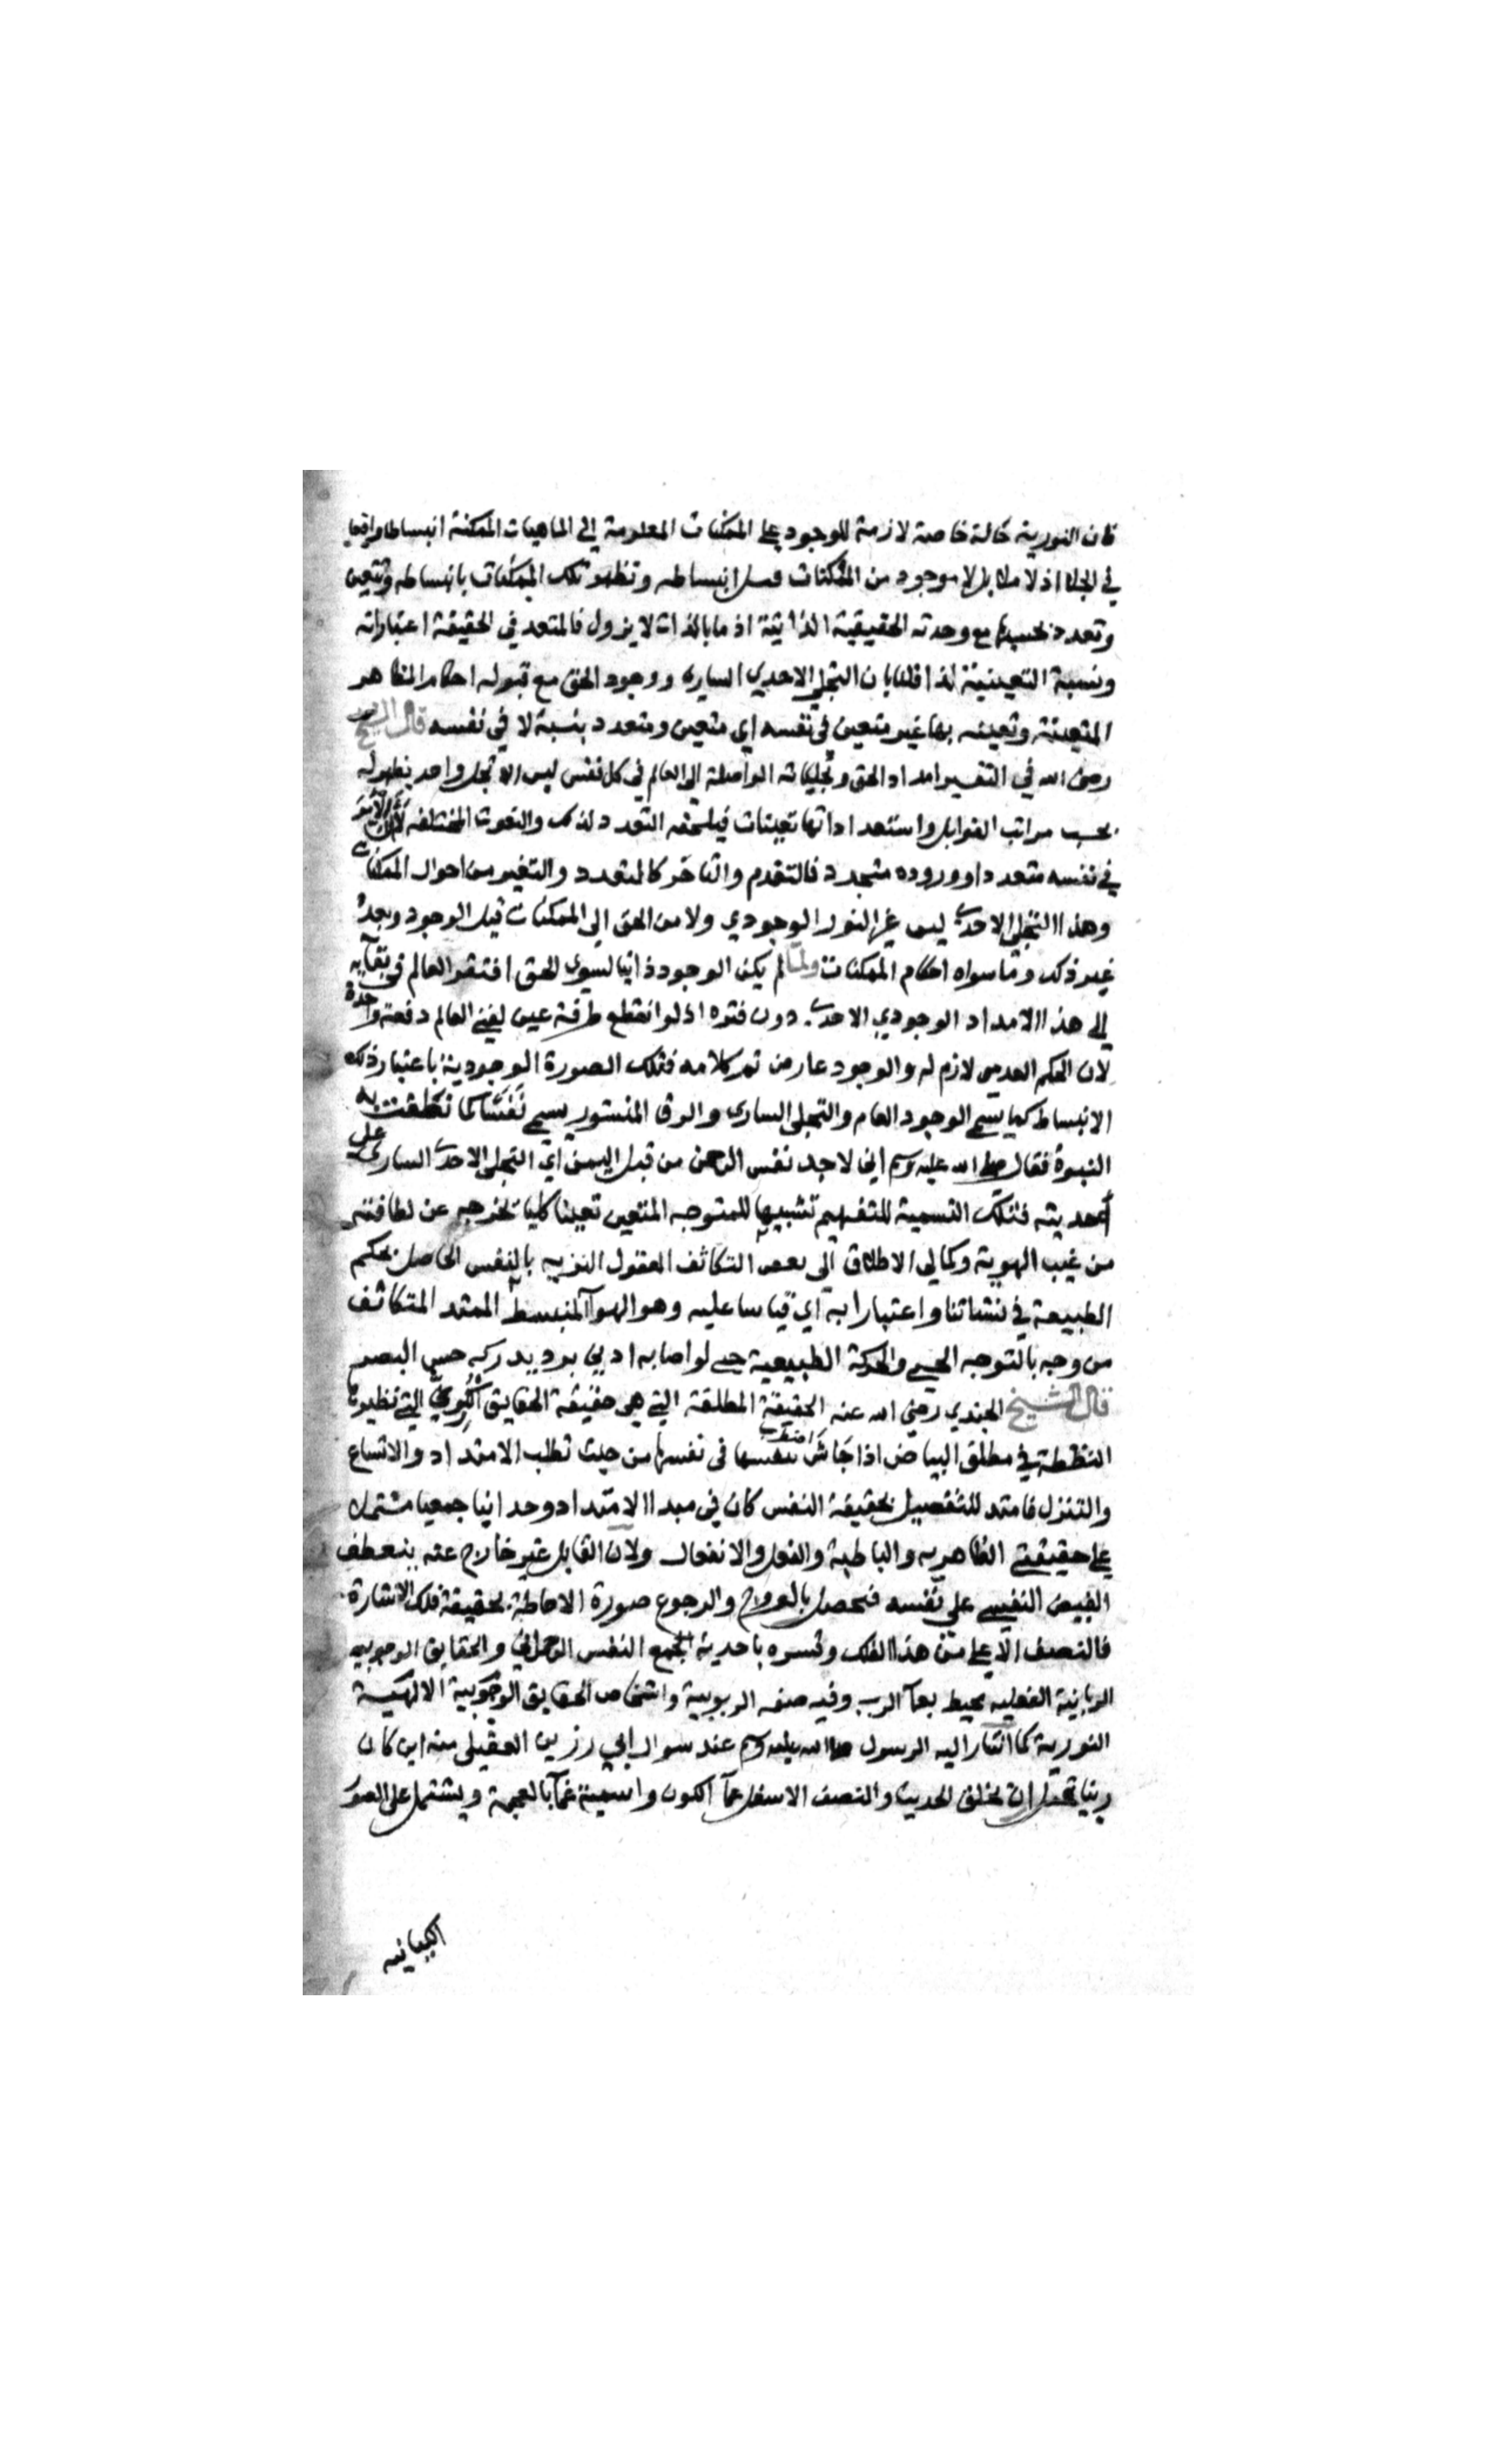 فان النورية حالة خاصة لازمة للوجود على الممكنات المعلومة إلى الماهيات الممكنة انبساطا واقعا
في الجلا اذ لا مقابل لا موجود من الممكنات قبل انبساطه وتظهر تلك الممكنات بانبساطه وتتعين
وتعدد بحسبها مع وحدته الحقيقية الذاتية اذ ما بالذات لا يزول فالمتعدد في الحقيقة اعتباراته
ونسبة التعينية لذا قلنا بان التجلي الاحدي الساري ووجود الحق مع قبوله احكام المظاهر
المتعينة وتعينه بها غير متعين في نفسه اي متعين ومتعدد بنسبة لا في نفسه قال الشيخ
رضى الله في التفسير امداد الحق وتجلياته الواصلة الى العالم في كل نفس ليس الا تجل واحد يظهر له
بحسب مراتب القوابل واستعداداتها تعينات فيلحقه التعدد لذلك والنعوت المختلفة لا ان الامر
في نفسه متعدد او وروده متجدد فالتقدم والتاخر كالمتعدد والتغير من احوال الممكنات
وهذا التجلي الاحدي ليس غير النور الوجودي ولا من الحق الى الممكنات قبل الوجود وبعده
غير ذلك وما سواه احكام الممكنات ولما لم يكن الوجود ذاتيا لسوى الحق افتقر العالم في بقآيه
إلى هذا الامداد الوجودي الاحدي دون فتره اذ لو انقطع طرفة عين لفني العالم دفعة واحدة
لان الحكم العدمي لازم له والوجود عارض تم كلامه فتلك الصورة الوجودية باعتبار ذلك
الانبساط كما يسمى الوجود العام والتجلي الساري والرق المنشور يسمى نَفَسًا كما نطقت به
النبوة فقال صلى الله عليه وسلم اني لاجد نفس الرحمن من قبل اليمن اي التجلي الاحدي الساري على
أحديته فتلك التسمية للتفهيم تشبيها للمتوجه المتعين تعينا كليا تخرجه عن لطافته
من غيب الهوية وكمالي الاطلاق الى بعض التكاثف المعقول النزيه بالنفس الحاصل بحكم
الطبيعة في نشاتنا واعتبارا به اي قياسا عليه وهو الهوآ المنبسط الممتد المتكاثف
من وجه بالتوجه الحسي والحركة الطبيعية حتى لو اصابه ادنى برد يدركه حس البصر
قال الشيخ الجندي رضي الله عنه الحقيقة المطلقة التي هي حقيقة الحقايق الكبرى التي نظيرتها
النقطة في مطلق البياض اذا جاش نفسها في نفسها من حيث تطلب الامتداد والاتساع
والتنزل فامتد للتفصيل بحقيقة النفس كان في مبدا الامتداد وحدانيا جمعيا مشتملا
على حقيقتي الظاهرية والباطنية والفعل والانفعال ولان القابل غير خارج عنه ينعطف
الفيض النفسي على نفسه فتحصل بالعروج والرجوع صورة الاحاطة بحقيقة فلك الاشارة
فالنصف الاعلى من هذا الفلك وتسره باحدية الجمع النفس الرحماني والحقايق الوجوبية
الربانية الفعلية محيط بعمآ الرب وفيه صفه الربوبية واشخاص الحقايق الوجوبية الالهية
النورية كما اشار اليه الرسول صلى الله عليه وسلم عند سوال ابي رزين العقيلي منه اين كان
ربنا قبل ان يخلق الخلق الحديث والنصف الاسفل عمآ الكون واسميته غمآ بالعجمة ويشتمل على الصور
الكيانيه